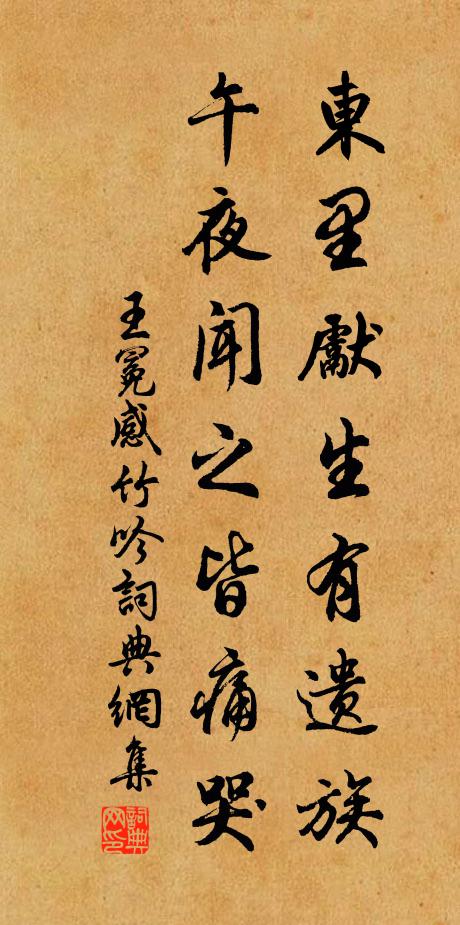 東里獻生有遺族
午夜聞之皆痛哭
王冕感竹吟詞典網集
詞典网印